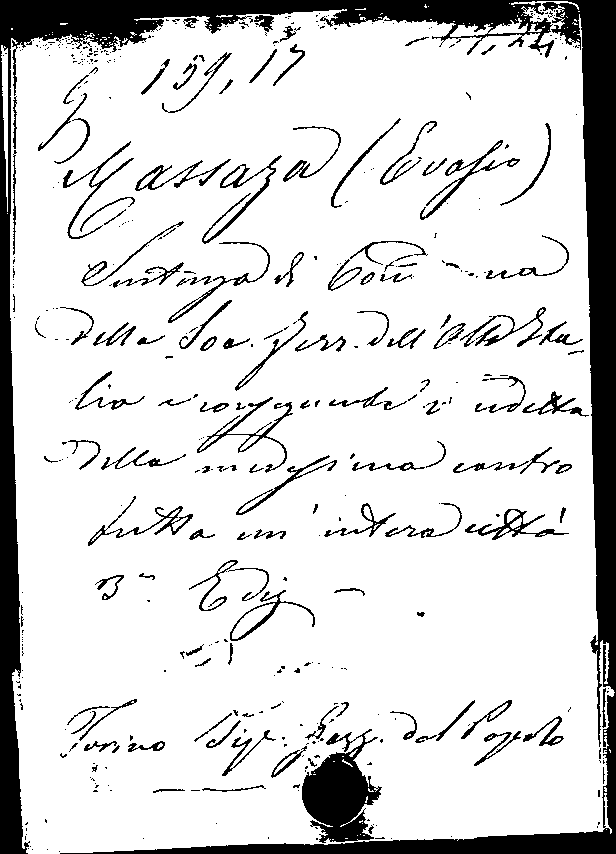 17,24
G. 159,17
Massaza (Evasio)
Sentenza di
della Soc. Ferr. dell'Alta Ita-
lia e conseguente
della medesima contro
tutta un'intera città
3ª Ediz
Torino Tip. Gazz. del Popolo